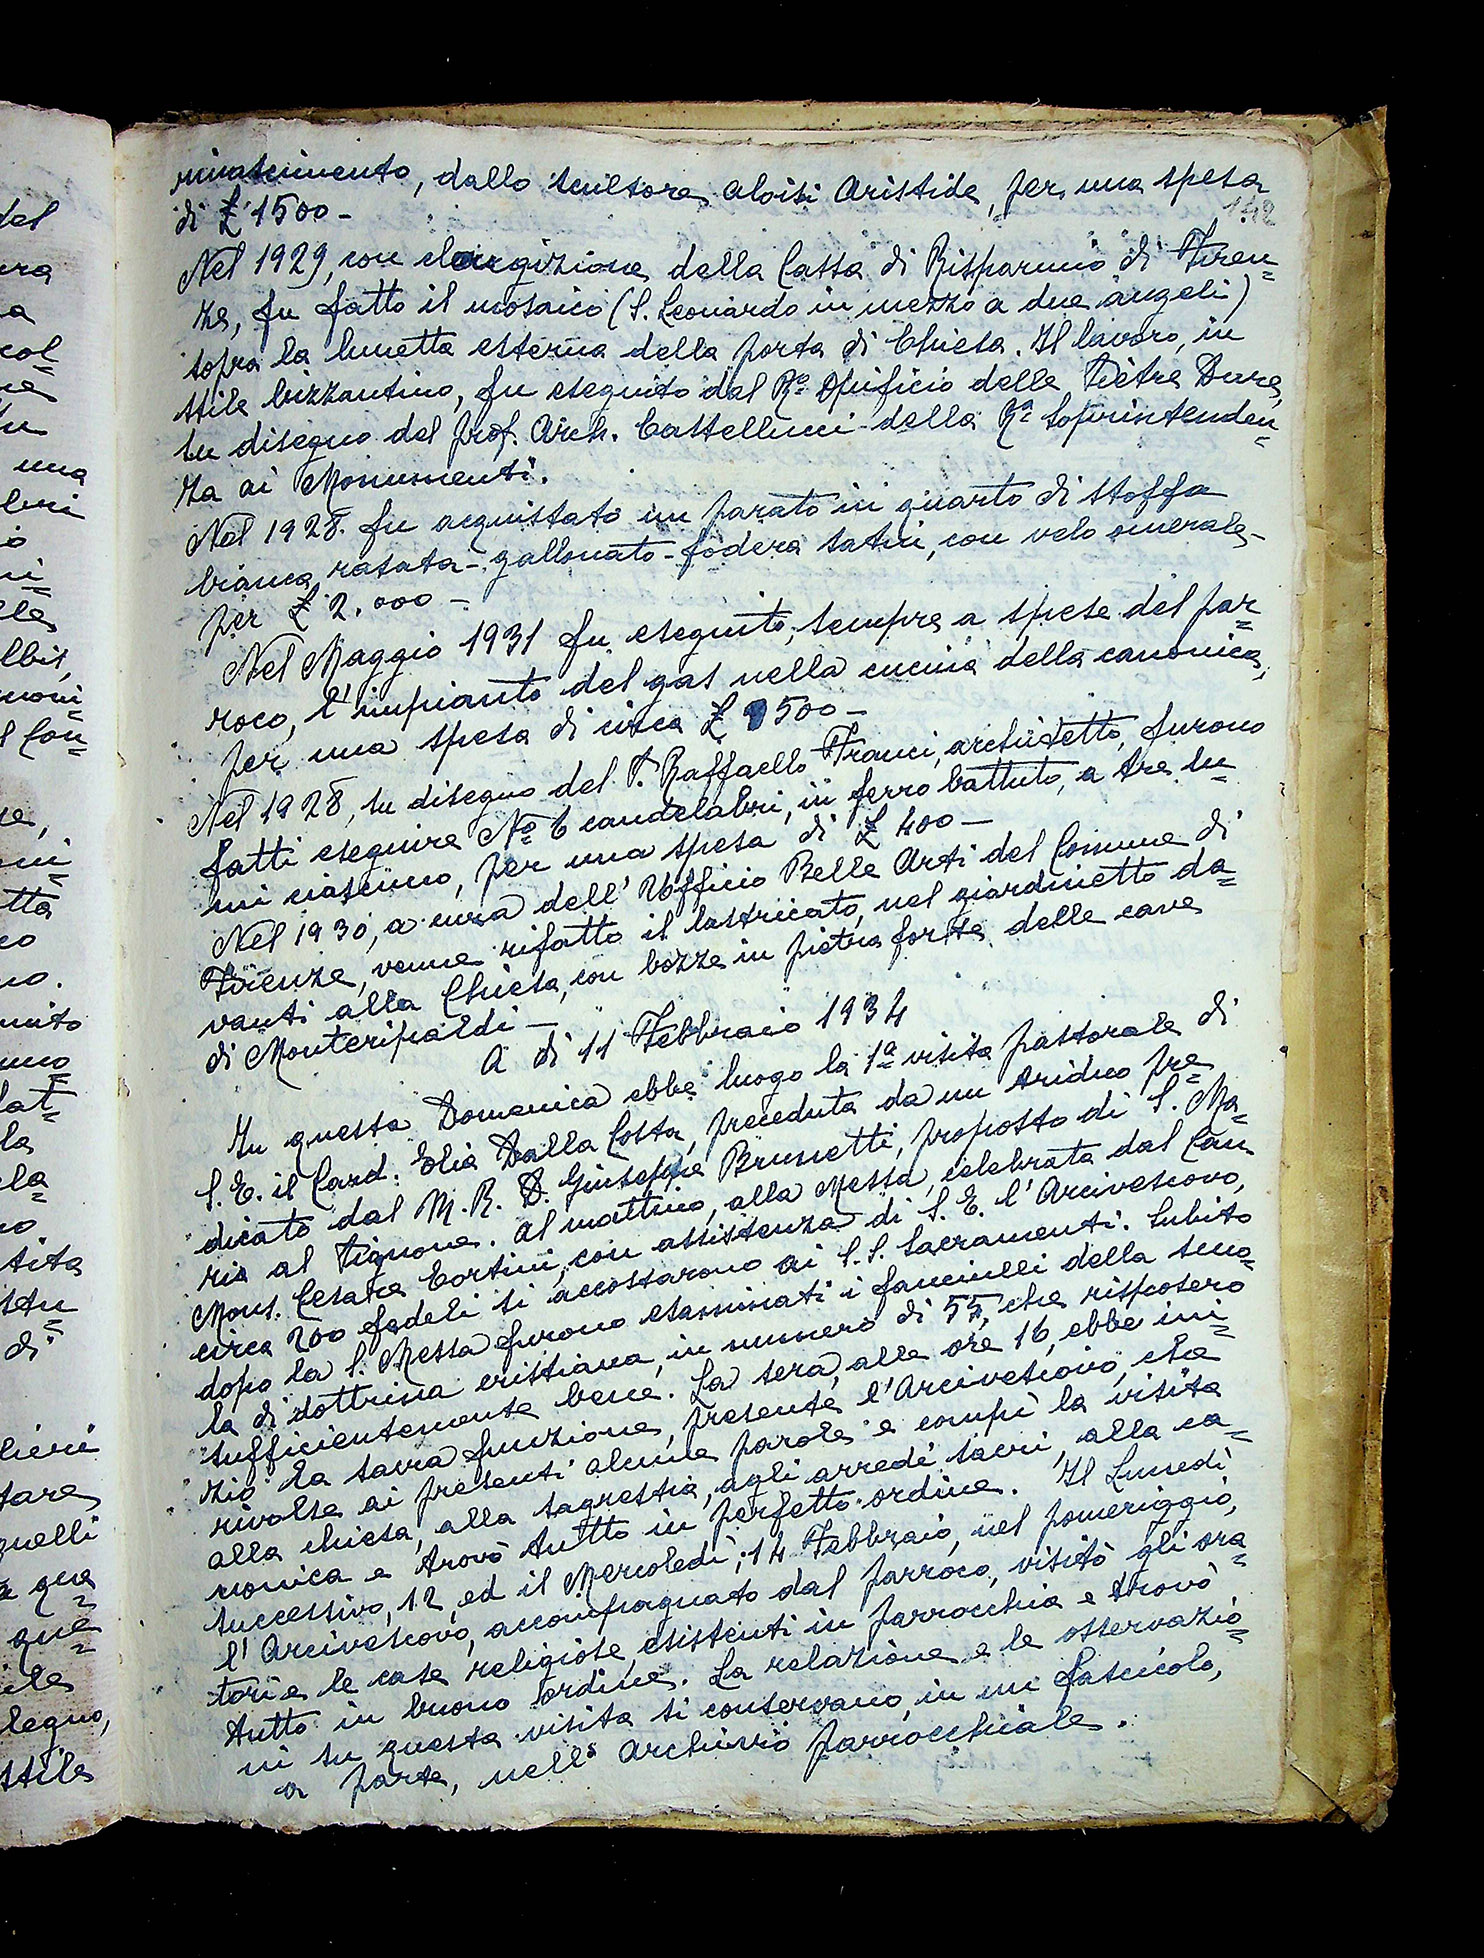 del
ura
a
col=
ne
Su
una
bri
o
ni=
lle
lbis,
moni=
l Con=
se,
ni=
tta
co
no.
mito
uno=
lat=
la
la=
no
tita
stu=
di
lieri
tare
quelli
a que=
que=
ile
legno,
stile
rinascimento, dallo scultore Aloisi Aristide, per una spesa
142
di £ 1500-
Nel 1929, con elargizione della Cassa di Risparmio di Firen=
ze, fu fatto il mosaico (S. Leonardo in mezzo a due angeli)
sopra la lunetta esterna della porta di Chiesa. Il lavoro, in
stile bizzantino, fu eseguito dal Rº Opificio delle Pietre Dure,
su disegno del prof. Arch. Castellucci della Rª Soprintenden=
za ai Monumenti.
Nel 1928. fu acquistato un parato in quarto di stoffa
bianca rasata-gallonato-fodera satin, con velo omerale-
per £ 2.000-
Nel Maggio 1931 fu eseguito, sempre a spese del par=
roco, l'impianto del gas nella cucina della canonica,
per una spesa di circa £ 500-
Nel 1928, su disegno del P. Raffaello Franci, architetto, furono
fatti eseguire Nº 6 candelabri, in ferro battuto, a tre lu=
mi ciascuno, per una spesa di £ 400-
Nel 1930, a cura dell'Ufficio Belle Arti del Comune di
Firenze, venne rifatto il lastricato, nel giardinetto da=
vanti alla Chiesa, con bozze in pietra forte delle cave
di Monteripaldi-
A dì 11 Febbraio 1934
In questa Domenica ebbe luogo la 1ª visita pastorale di
S. E. il Card. Elia Dalla Costa, preceduta da un triduo pre=
dicato dal M. R. D. Giuseppe Brunetti, proposto di S. Ma=
ria al Pignone. Al mattino, alla Messa, celebrata dal Can.
Mons. Cesare Cortini, con assistenza di S. E. l'Arcivescovo,
circa 200 fedeli si accostarono ai S.S. Sacramenti. Subito
dopo la S. Messa furono esaminati i fanciulli della scuo=
la di dottrina cristiana, in numero di 55, che risposero
sufficientemente bene. La sera, alle ore 16, ebbe ini=
zio la sacra funzione, presente l'Arcivescovo, che
rivolse ai presenti alcune parole e compì la visita
alla chiesa, alla sagrestia, agli arredi sacri, alla ca=
nonica e trovò tutto in perfetto ordine. Il Lunedì
successivo, 12, ed il Mercoledì, 14 Febbraio, nel pomeriggio,
l'Arcivescovo, accompagnato dal parroco, visitò gli ora=
tori e le case religiose, esistenti in parrocchia e trovò
tutto in buono ordine. La relazione e le osservazio=
ni su questa visita si conservano, in un fascicolo,
a parte, nell'archivio parrocchiale.